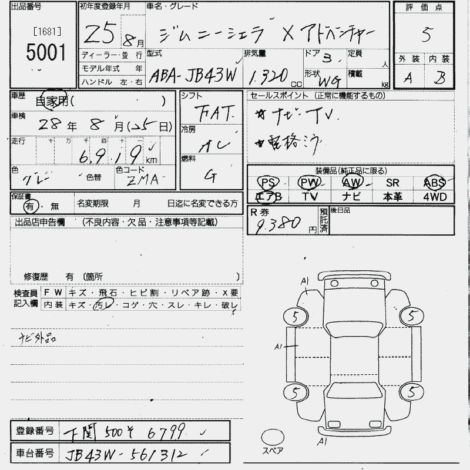 出品番号 初年度登録年月 車名・グレード 評価点
[1681]
5001
25年 8月 ジムニーシエラ Xアドベンチャー 5
ディーラー・並行 型式 排気量 ドア 3. 定員 人 外装 内装
モデル年式 年 ABA-JB43W 1,320 CC 形状 WG 積載量 kg A B
ハンドル 左・右
車歴 自家用( ) シフト セールスポイント (正常に機能するもの)
車検 28年 8月(25日) FAT. *ナビ・TV.
走行 6,919 km 冷房
燃料 G
色 グレー 色替 色コード ZMA
装備品(純正品に限る)
PS PW AW SR ABS
エアB TV ナビ 本革 4WD
保証書 有・無 名変期限 月 日迄に名変できる方
R券 9,380円 預託済 後日品
出品店申告欄 (不良内容・欠品・注意事項等記載)
修復歴 有 (箇所 )
検査員記入欄 FW キズ・飛石・ヒビ割・リペア跡・X要
内装 キズ・汚レ・コゲ・穴・スレ・キレ・破レ
ナビ外品
A1
5 5
A1
5 5
A1
スペア
登録番号 下関 500 そ 6799
車台番号 JB43W-561312